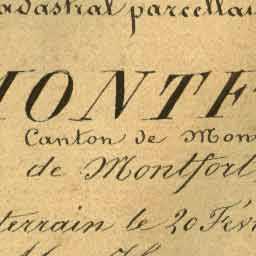 adastral parcellai
MONTF
Canton de Mon
de Montfort
terrain le 20 Fév